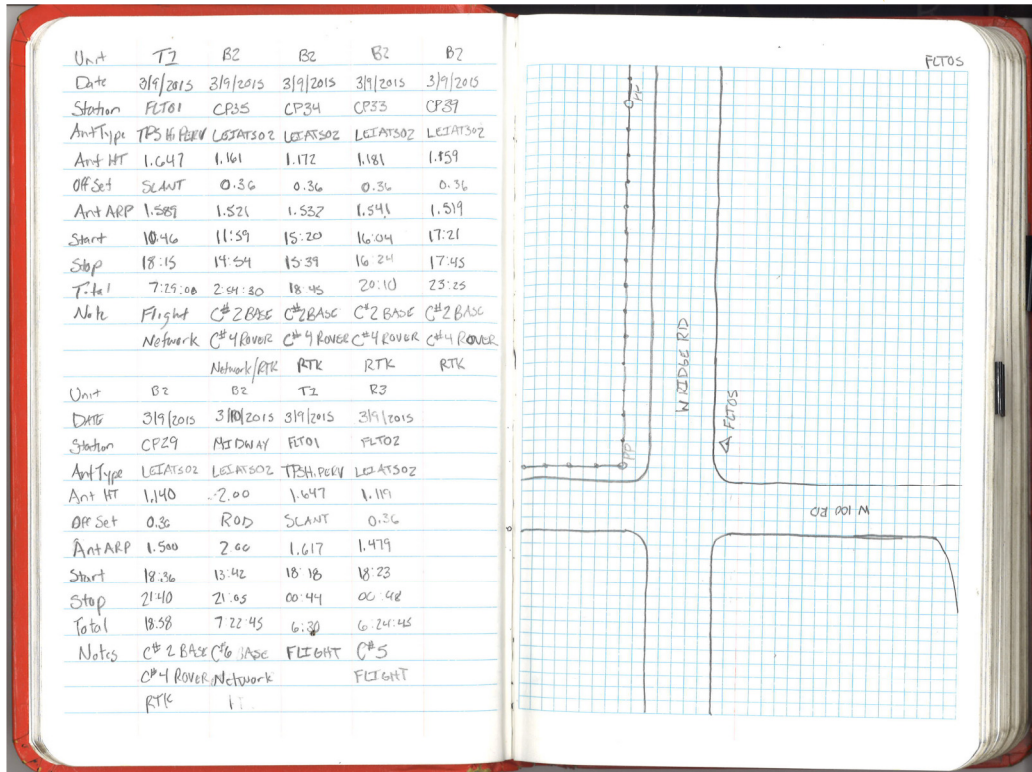 Unit T1 B2 B2 B2 B2
Date 3/9/2015 3/9/2015 3/9/2015 3/9/2015 3/9/2015
Station FLT01 CP35 CP34 CP33 CP39
Ant Type TPS Hi PERV LEIATS02 LEIATS02 LEIATS02 LEIATS02
Ant HT 1.647 1.161 1.172 1.181 1.159
Off Set SLANT 0.36 0.36 0.36 0.36
Ant ARP 1.589 1.521 1.532 1.541 1.519
Start 10:46 11:59 15:20 16:04 17:21
Stop 18:15 14:54 15:39 16:24 17:45
Total 7:29:00 2:54:30 18:45 20:10 23:25
Note Flight C#2 BASE C#2 BASE C#2 BASE C#2 BASE
Network C#4 ROVER C#4 ROVER C#4 ROVER C#4 ROVER
Network/RTK RTK RTK RTK
Unit B2 B2 T1 R3
DATE 3/9/2015 3/10/2015 3/9/2015 3/9/2015
Station CP29 MIDWAY FLT01 FLT02
Ant Type LEIATS02 LEIATS02 TPSH.PERV LEIATS02
Ant HT 1.140 2.00 1.647 1.119
Off Set 0.36 ROD SLANT 0.36
Ant ARP 1.500 2.00 1.617 1.479
Start 18:36 13:42 18:18 18:23
Stop 21:40 21:05 00:44 00:48
Total 18:58 7:22:45 6:30 6:24:45
Notes C#2 BASE C#6 BASE FLIGHT C#5
C#4 ROVER Network FLIGHT
RTK
FLT05
PP
W RIDGE RD
FLT05
PP
W 100 RD